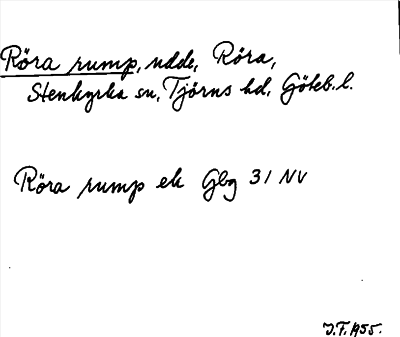 Röra rump, udde, Röra,
Stenkyrka sn, Tjörns hd, Göteb. l.
Röra rump ek Gbg 31 NV
J.F. 1955.